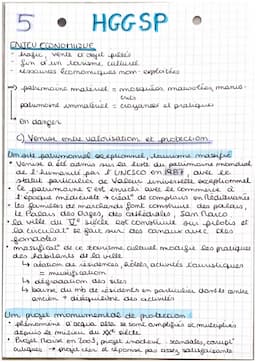 5 HGGSP
ENJEU ECONOMIQUE
- trafic, vente d'objet pillés
- fin d'un tourisme culturel
- ressources économiques non-exploitées
=> patrimoine matériel = mosquées mausolées, manuscrits
patrimoine immatériel = croyances et pratiques
↳ En danger
C) Venise entre valorisation et protection.
Un site patrimonial exceptionnel, tourisme massifié
• Venise a été admis sur la liste du patrimoine mondial
de l'humanité par l'UNESCO en 1987, avec le
statut particulier de Valeur universelle exceptionnel
• Ce patrimoine s'est enrichi avec le commerce à
l'époque médiévale → créat° de comptoirs en Méditerranée
• les familles de marchands font construire des palais,
le Palais des Doges, des cathédrales, San Marco
• la ville du siècle est construite sur pilotis et
la circulat° se fait sur des canaux avec des
gondoles
• massificat° de ce tourisme culturel modifie les pratiques
des habitants de la ville
↳ résidences, hôtels, activités touristiques
= muséification
↳ dégradation des sites
↳ baisse du nb de résidents en particulier dans le centre
ancien + déséquilibre des activités
Un projet monumental de protection
• phénomène d'acqua alta se sont amplifiés et multipliés
depuis le milieu du XXe siècle
• Projet Mose en 2003, projet inachevé : scandales, corrupt°
critiques → projet cher et réponse pas assez satisfaisante